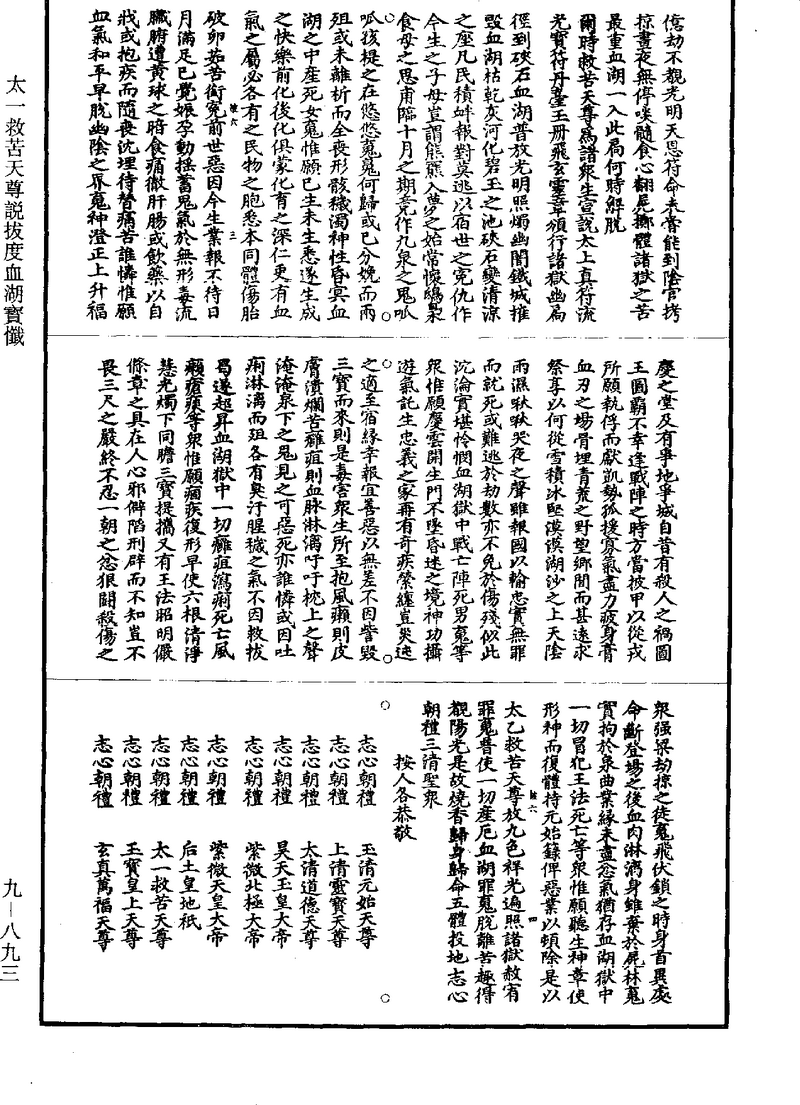 億劫不覩光明天恩符命未嘗能到陰官拷
掠晝夜無停啖髓食心翻屍擲體諸獄之苦
最重血湖一入此局何時解脫
爾時救苦天尊爲諸衆生宣說太上真符流
光寶符丹臺玉冊飛玄靈章頒行諸獄幽局
徑到硤石血湖普放光明照燭幽闇鐵城摧
毀血湖枯乾灰河化碧玉之池硤石變清涼
之座凡民積衅報對莫逃以宿世之冤仇作
今生之子母豈謂熊羆入夢之始常懷鴟梟
食母之思甫臨十月之期竟作九泉之鬼呱
呱後提之在悠悠䰟䰟何歸或已分娩而兩
殂或未離析而全喪形骸穢濁神性昏冥血
湖之中產死女䰟惟願已生未生悉遂生成
之快樂前化後化俱蒙化育之深仁更有血
氣之屬必各有之民物之胞悉本同體傷胎
破卵茹苦銜冤前世惡因今生業報不待日
月滿足已覺娠孕動搖蓄鬼氣於無形毒流
臟腑遭黃球之暗食痛徹肝腸或飲藥以自
戕或抱疾而隨喪沈埋待替痛苦誰憐惟願
血氣和平早脫幽陰之界䰟神澄正上升福
慶之堂及有爭地爭城自昔有殺人之禍圖
王圖霸不幸逢戰陣之時方當被甲以從戎
所願執俘而獻凱勢孤援寡氣盡力疲身膏
血刃之場骨埋青荒之野望鄉閭而甚遠求
祭享以何從雪積氷堅漠漠湖沙之上天陰
雨濕啾啾哭夜之聲雖報國以輸忠實無罪
而就死或難逃於劫數亦不免於傷殘似此
沉淪實堪怜憫血湖獄中戰亡陣死男䰟等
衆惟願慶雲開生門不墜昏迷之境神功攝
遊氣託生忠義之家再有奇疾縈纏豈災迍
之適至宿緣幸報宜善惡以無差不因訾毀
三寶而來則是毒害衆生所至抱風癩則皮
膚潰爛苦癰疽則血脉淋漓吁吁枕上之聲
淹淹泉下之鬼見之可惡死亦誰憐或因吐
痢淋漓而殂各有臭汙腥穢之氣不因救拔
曷遂超昇血湖獄中一切癰疽瀉痢死亡風
癩瘡痍等衆惟願痼疾復形早使六根清淨
慧光燭下同瞻三寶提攜又有王法昭明儼
條章之具在人心邪僻陷刑辟而不知豈不
畏三尺之嚴終不忍一朝之忿狠鬪殺傷之
衆强梁劫掠之徒䰟飛伏鎖之時身首異處
命斷登場之後血肉淋漓身雖棄於屍林䰟
實拘於泉曲業緣未盡愆氣猶存血湖獄中
一切冒犯王法死亡等衆惟願聽生神章使
形神而復體持元始籙俾惡業以頓除是以
太乙救苦天尊放九色祥光遍照諸獄赦宥
罪䰟普使一切產厄血湖罪䰟脫離苦趣得
覩陽光是故燒香歸身歸命五體投地志心
朝禮三清聖衆
按人各恭敬
志心朝禮 玉清元始天尊
志心朝禮 上清靈寶天尊
志心朝禮 太清道德天尊
志心朝禮 昊天玉皇大帝
志心朝禮 紫微北極大帝
志心朝禮 紫微天皇大帝
志心朝禮 后土皇地祇
志心朝禮 太一救苦天尊
志心朝禮 玉寶皇上天尊
志心朝禮 玄真萬福天尊
太一救苦天尊説拔度血湖寶懺
九－八九三